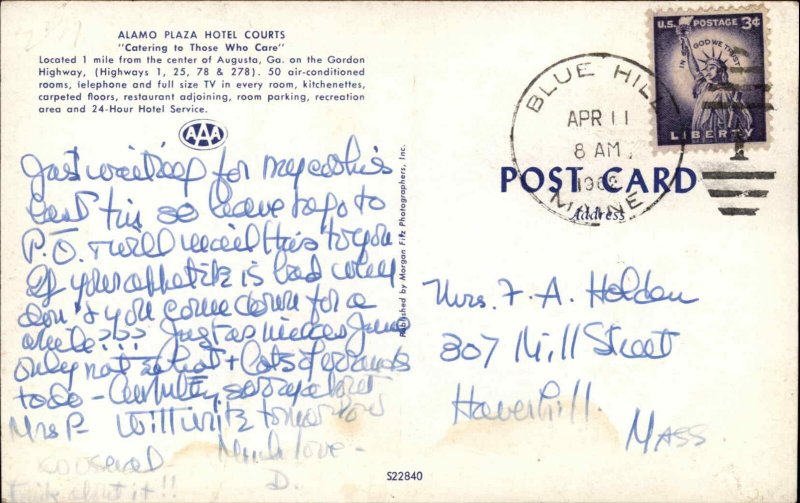 ALAMO PLAZA HOTEL COURTS
"Catering to Those Who Care"
Located 1 mile from the center of Augusta, Ga. on the Gordon
Highway, (Highways 1, 25, 78 & 278). 50 air-conditioned
rooms, telephone and full size TV in every room, kitchenettes,
carpeted floors, restaurant adjoining, room parking, recreation
area and 24-Hour Hotel Service.
AAA
Just waiting for my
last so have to go to
P.O. & will mail this to you
If your appetite is bad why
don't you come down for a
while?!?!! Just as nice as June
only not so hot + lots of errands
to do - Awfully sorry about
Mrs P- Will write tomorrow
Much love -
D.
about it!!
Published by Morgan Fitz Photographers, Inc.
S22840
U.S. POSTAGE 3¢
IN GOD WE TRUST
LIBERTY
BLUE HILL
APR 11
8 AM
MAINE
POST CARD
Address
Mrs. F. A. Holden
307 Mill Street
Haverhill.
Mass